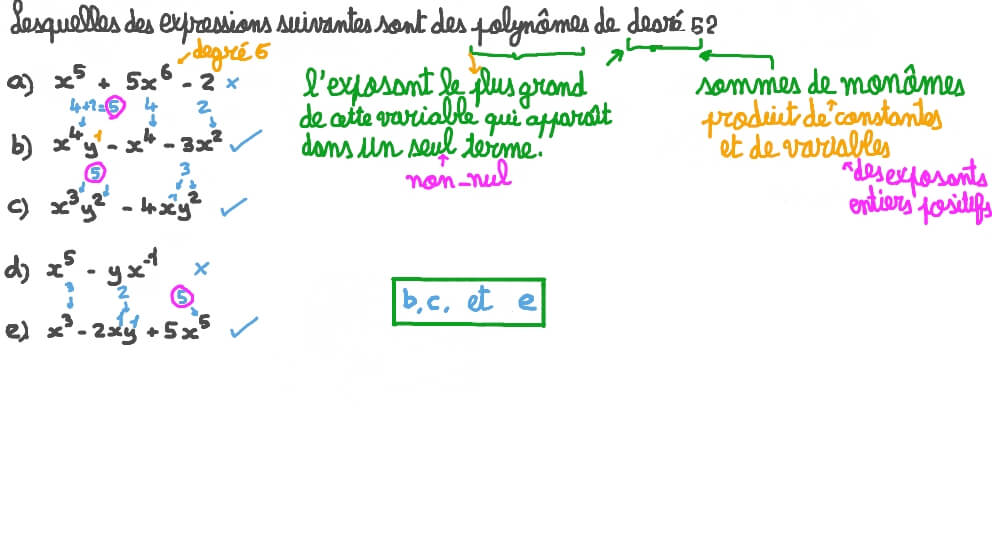 Lesquelles des expressions suivantes sont des polynômes de degré 5?
degré 6
a) x⁵ + 5x⁶ - 2 ×
4+1=5 4 2
b) x⁴y¹ - x⁴ - 3x² ✓
5 3
c) x³y² - 4xy² ✓
d) x⁵ - yx⁻¹ ×
3 2 5
e) x³ - 2x¹y¹ + 5x⁵ ✓
l'exposant le plus grand
de cette variable qui apparaît
dans un seul terme.
non-nul
sommes de monômes
produit de constantes
et de variables
des exposants
entiers positifs
b, c, et e